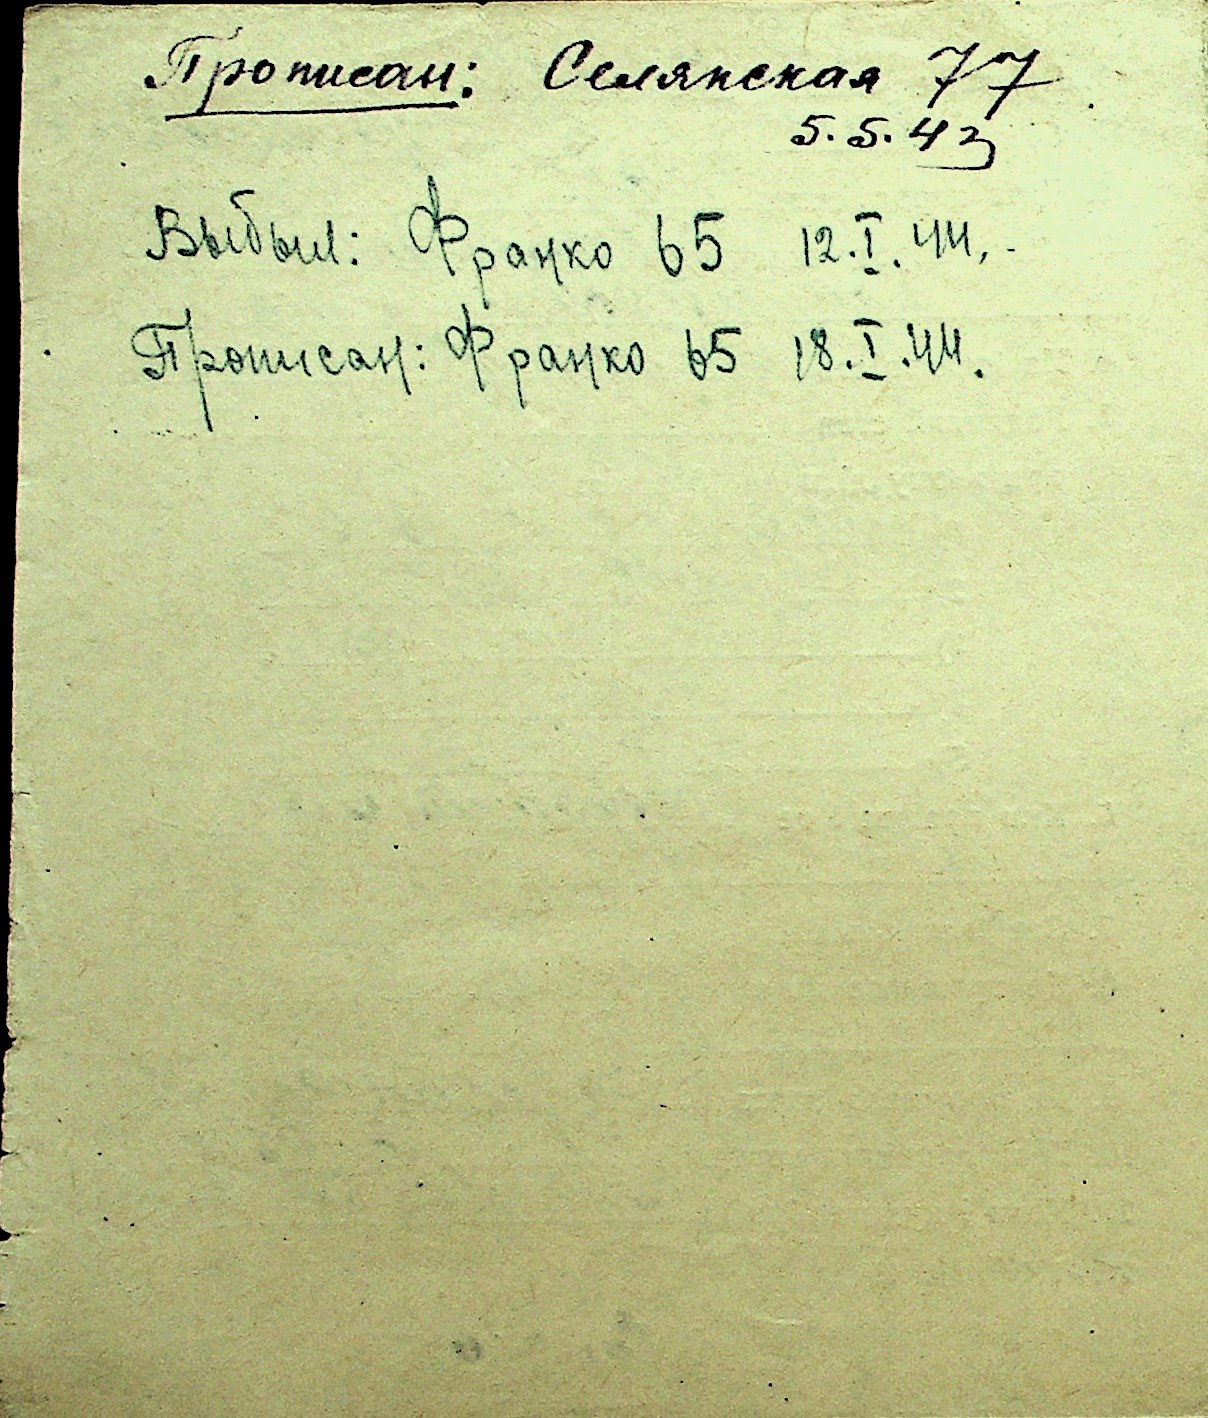 Прописан: Селянская 77
5.5.43
Выбыл: Франко 65 12.I.44.-
Прописан: Франко 65 18.I.44.